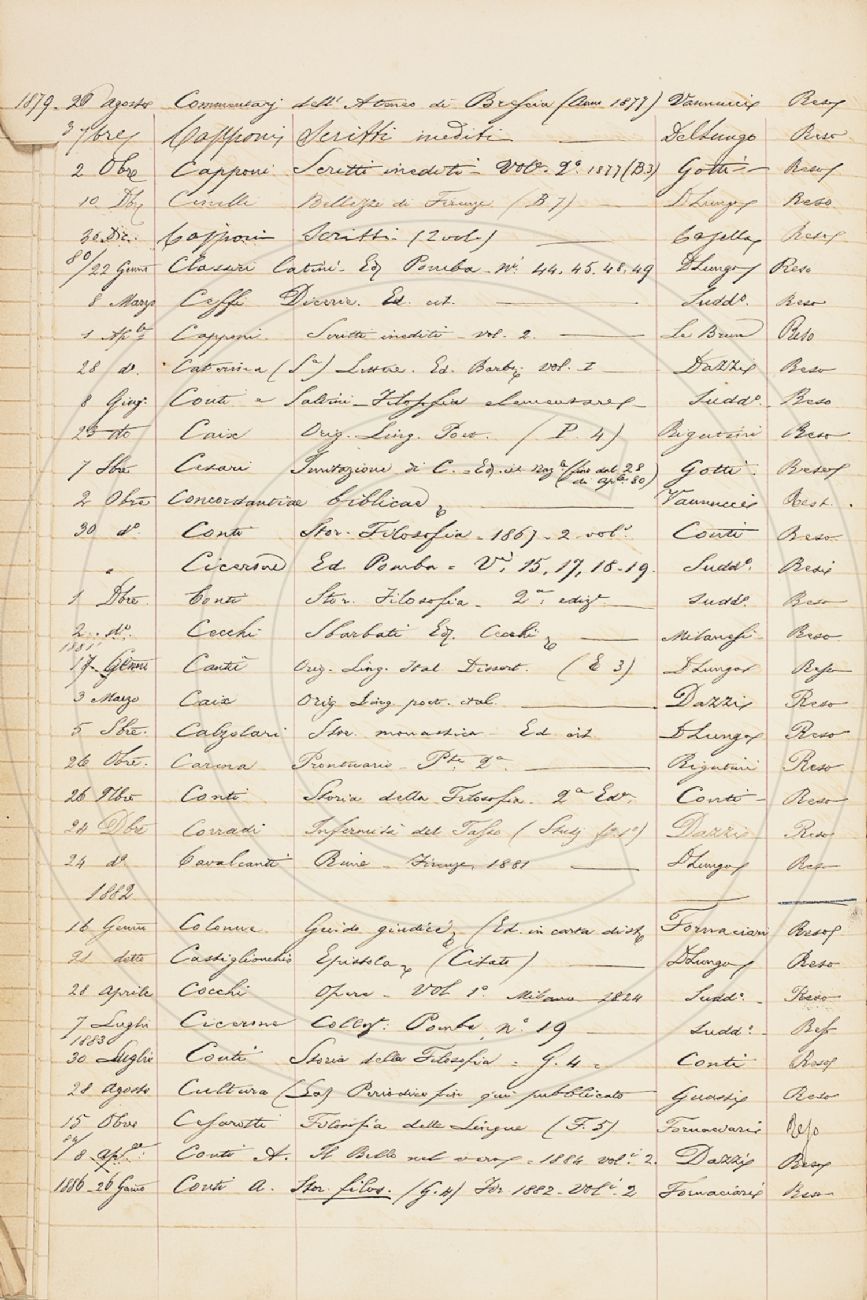 1879. 26 Agosto Commentarj dell'Ateneo di Brescia (Anno 1877) Vannucci Reso
3 7bre Capponi Scritti inediti — DelLungo Reso
2 Obre Capponi Scritti inediti - Vol. 2º 1877 (B3) Gotti - Reso
10 Dbre Cinelli Bellezze di Firenze (B7) — DLungo Reso
30 Dic. Capponi Scritti - (2 vol.) — Casella Reso
80/22 Genn Classici latini - Ed. Pomba - ni. 44. 45. 48. 49 DLungo Reso
8 Marzo Ceffi Dicerie. Ed. cit. — Sudd.º Reso
1 Ap.le Capponi. Scritti inediti - vol. 2 — Le Brun Reso
28 dº. Caterina (Sª) Lettere. Ed. Barb. vol. I — Dazzi Reso
8 Giug. Conti e Salvini - Filosofia elementare - Sudd.º Reso
23 dto Caix Orig. Ling. Poet. (P. 4) Rigutini Reso
7 Sbre Cesari Imitazione di C. - Ed. cit. (fino dal 28 Gotti Reso
di ap.le 80)
2 Obre Concordantiae biblicae — Vannucci Rest.
30 dº. Conti Stor. Filosofia - 1867 - 2 vol.i Conti Reso
" Cicerone Ed Pomba - Vi. 15, 17, 18-19. Sudd.º. Reso
1 Dbre. Conti Stor. Filosofia - 2ª. ediz. — Sudd.º Reso
2. dº. Cecchi Sbarbati Ed. Cecchi — Milanesi Reso
1881
17 Genn Caix Orig. Ling. Ital Dissert. (E 3) DLungo Reso
3 Marzo Caix Orig Ling poet. ital. — Dazzi Reso
5 Sbre. Calzolari Stor. monastica - Ed cit DLungo Reso
26 Obre. Carena Prontuario - Pte. 2ª — Rigutini Reso
26 9bre Conti Storia della Filosofia. 2ª Edº. Conti - Reso
24 Dbre Corradi Infermità del Tasso (Studj fº. 1º) Dazzi Reso
24 dº Cavalcanti Rime - Firenze, 1881 — DLungo Reso
1882
16 Genn Colonne Guido giudice, (Ed. in carta dist. Fornaciari Reso
21 detto Castiglionchio Epistola (Citate) — DLungo Reso
28 Aprile Cocchi Opere - Vol 1º. Milano 1824 Sudd.º - Reso
7 Luglio Cicerone Collez. Pomba, nº. 19 — Sudd.º - Reso
1883
30 Luglio Conti Storia della Filosofia - G. 4 - Conti Reso
28 Agosto Cultura (La) Periodico fin qui pubblicato Guasti Reso
15 Obre Cesarotti Filosofia delle Lingue (F. 5) Fornaciari Reso
84/8 Ap.le Conti A. Il Bello nel vero - 1884 vol.i 2. Dazzi Reso
1886 26 Genno Conti A. Stor. filos. (G. 4) Fir 1882 - Vol.i 2 Fornaciari Reso